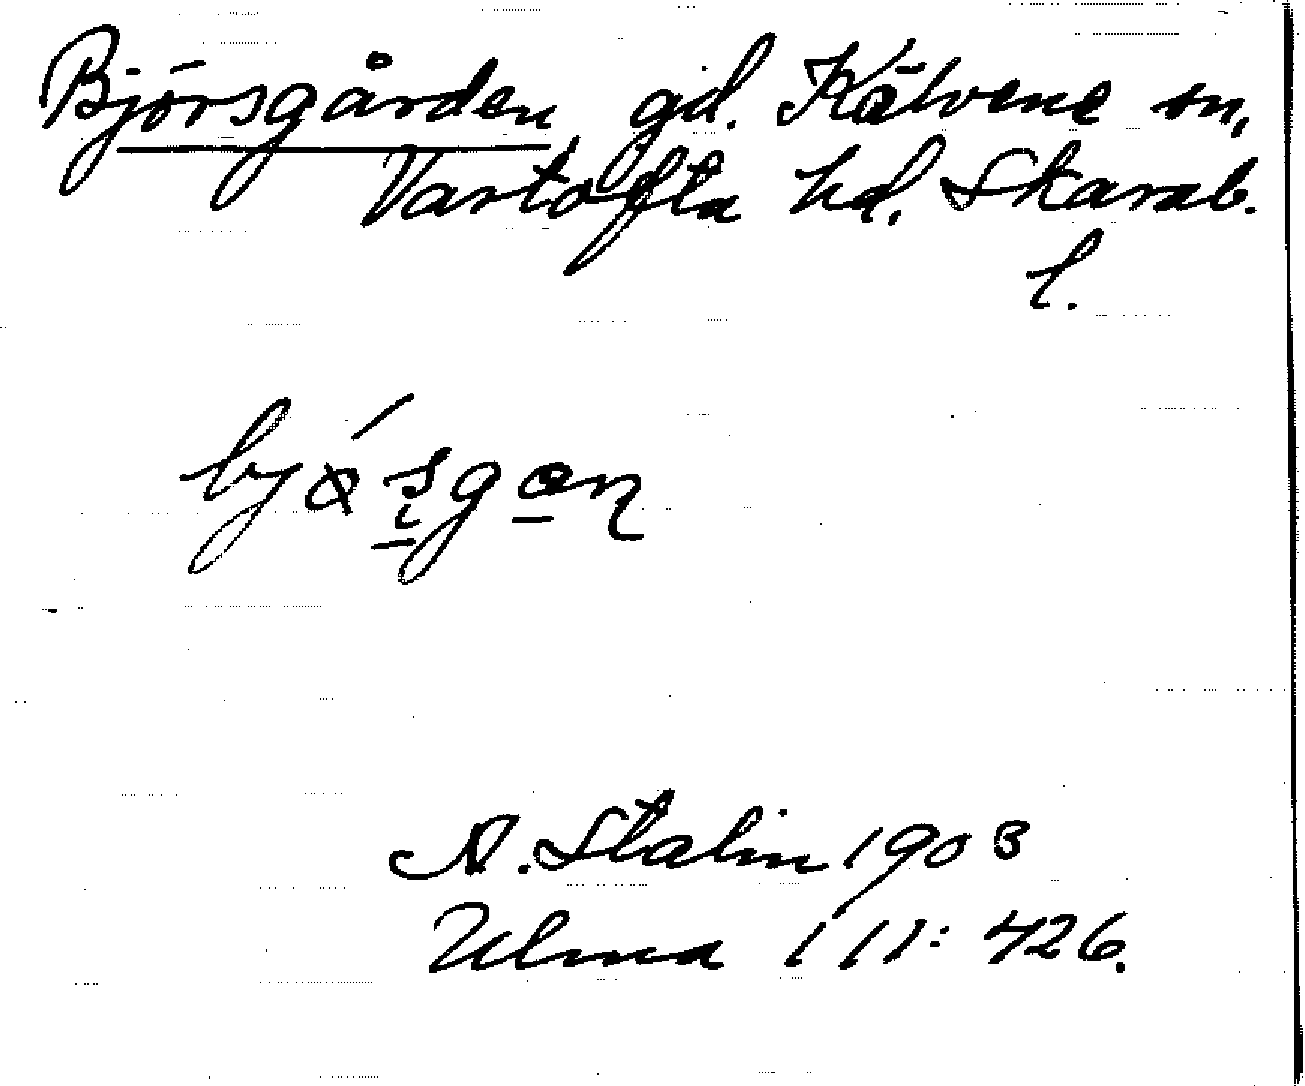 Björsgården gd. Kälvene sn,
Vartofta hd. Skarab.
l.
A. Stalin 1903
Ulma 111: 426.